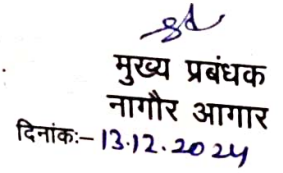 मुख्य प्रबंधक
नागौर आगार
दिनांक:– 13.12.2024